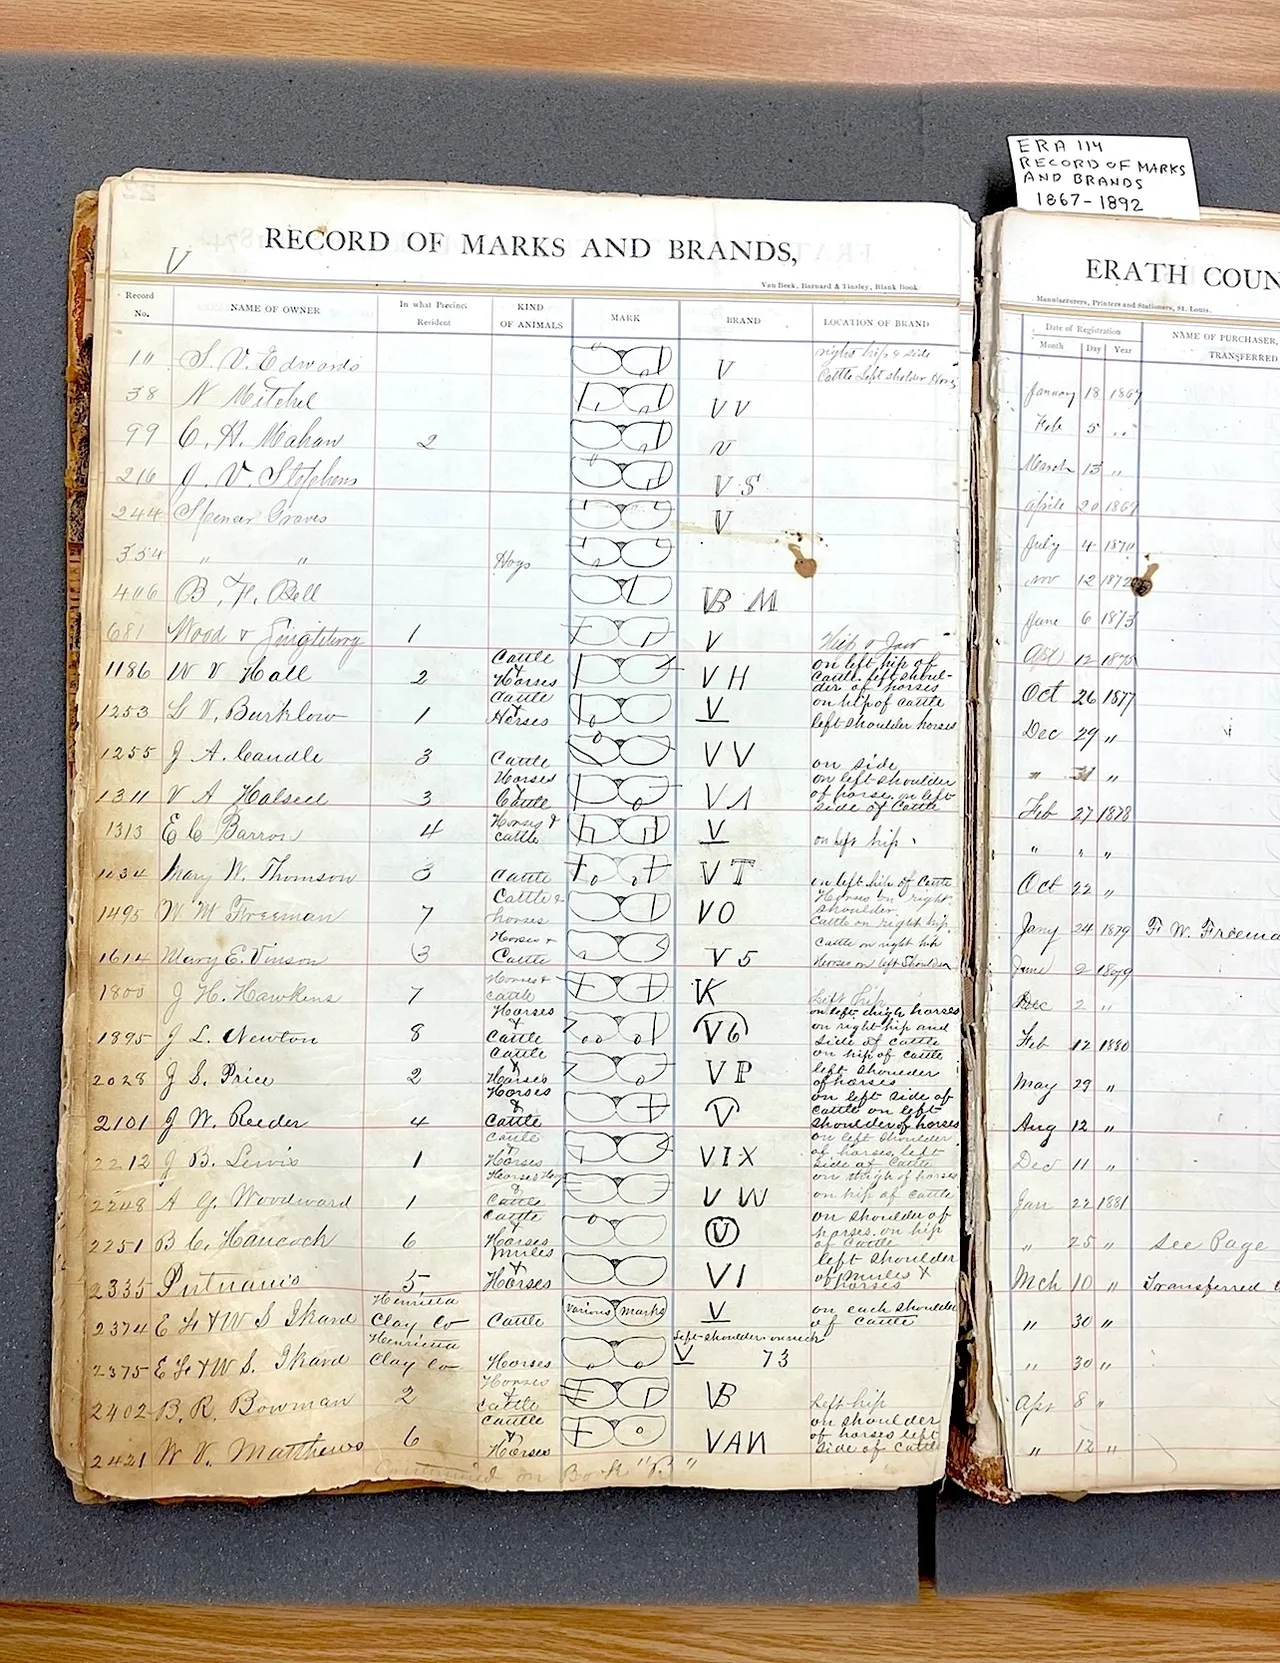 ERA 114
RECORD OF MARKS
AND BRANDS
1867-1892
V
RECORD OF MARKS AND BRANDS,
Van Beek, Barnard & Tinsley, Blank Book
Record No. NAME OF OWNER In what Precinct Resident KIND OF ANIMALS MARK BRAND LOCATION OF BRAND
right hip & side
10 S. V. Edwards V Cattle Left sholder Hors
38 N Mitchel VV
99 C. A. Mahan 2 V
216 J. V. Stephens VS
244 Spencer Graves V
354 " " Hogs
406 B. F. Bell B M
681 Wood & 1 V Hip & Jaw
1186 W V Hall 2 Cattle & Horses VH on left hip of Cattle left shoul-der of horses
1253 G V. Burklow 1 Cattle & Horses V on hip of cattle left shoulder horses
1255 J A. Caudle 3 Cattle VV on side
1311 V A Halsell 3 Horses & Cattle VA on left shoulder of horse on left side of Cattle
1313 E C Barron 4 Horses & cattle V on left hip
1434 Mary W. Thomson 3 Cattle VT on left hip of Cattle
1495 W M Freeman 7 Cattle & horses VO Horses on right shoulder Cattle on right hip
1614 Mary E. Vinson 3 Horses & Cattle V5 Cattle on right hip Horses on left Shoulder
1800 J H. Hawkins 7 Horses & cattle VK Left hip
1895 J L. Newton 8 Horses & Cattle V6 on left thigh horses on right hip and side of cattle
2028 J S. Price 2 Cattle & Horses VP on hip of cattle left shoulder of horses
2101 J W. Reeder 4 Horses & Cattle V on left side of cattle on left shoulder of horses
2212 J B. Lewis 1 Cattle & Horses VIX on left shoulder of horses left side of cattle
2248 A G. Woodward 1 Horses Hogs & Cattle VW on thigh of horses on hip of cattle
2251 B C. Hancock 6 Cattle & Horses V on shoulder of horses. on hip of cattle
2335 Putnam's 5 mules & Horses VI left shoulder of mules & horses
2374 E F & W S Ikard Henrietta Clay Co Cattle various marks V on each shoulder of cattle
2375 E F & W S. Ikard Henrietta Clay Co Horses V 73 Left shoulder on neck
2402 B. R. Bowman 2 Horses & Cattle VB Left hip
2421 W V. Matthews 6 Cattle & Horses VAN on shoulder of horses left side of Cattle
Continued on Book "P."
ERATH COUN
Manufacturers, Printers and Stationers, St. Louis.
Date of Registration NAME OF PURCHASER,
Month Day Year TRANSFERRED
January 18 1867
Feb 5 "
March 13 "
Aprile 20 1869
July 4 1870
Nov 12 1872
June 6 1873
Apl 12 1875
Oct 26 1877
Dec 29 "
" 31 "
Feb 27 1878
" " "
Oct 22 "
Jany 24 1879 F. W. Freema
June 2 1879
Dec 2 "
Feb 12 1880
May 29 "
Aug 12 "
Dec 11 "
Jan 22 1881
" 25 " See Page
Mch 10 " Transferred t
" 30 "
" 30 "
Apr 8 "
" 12 "